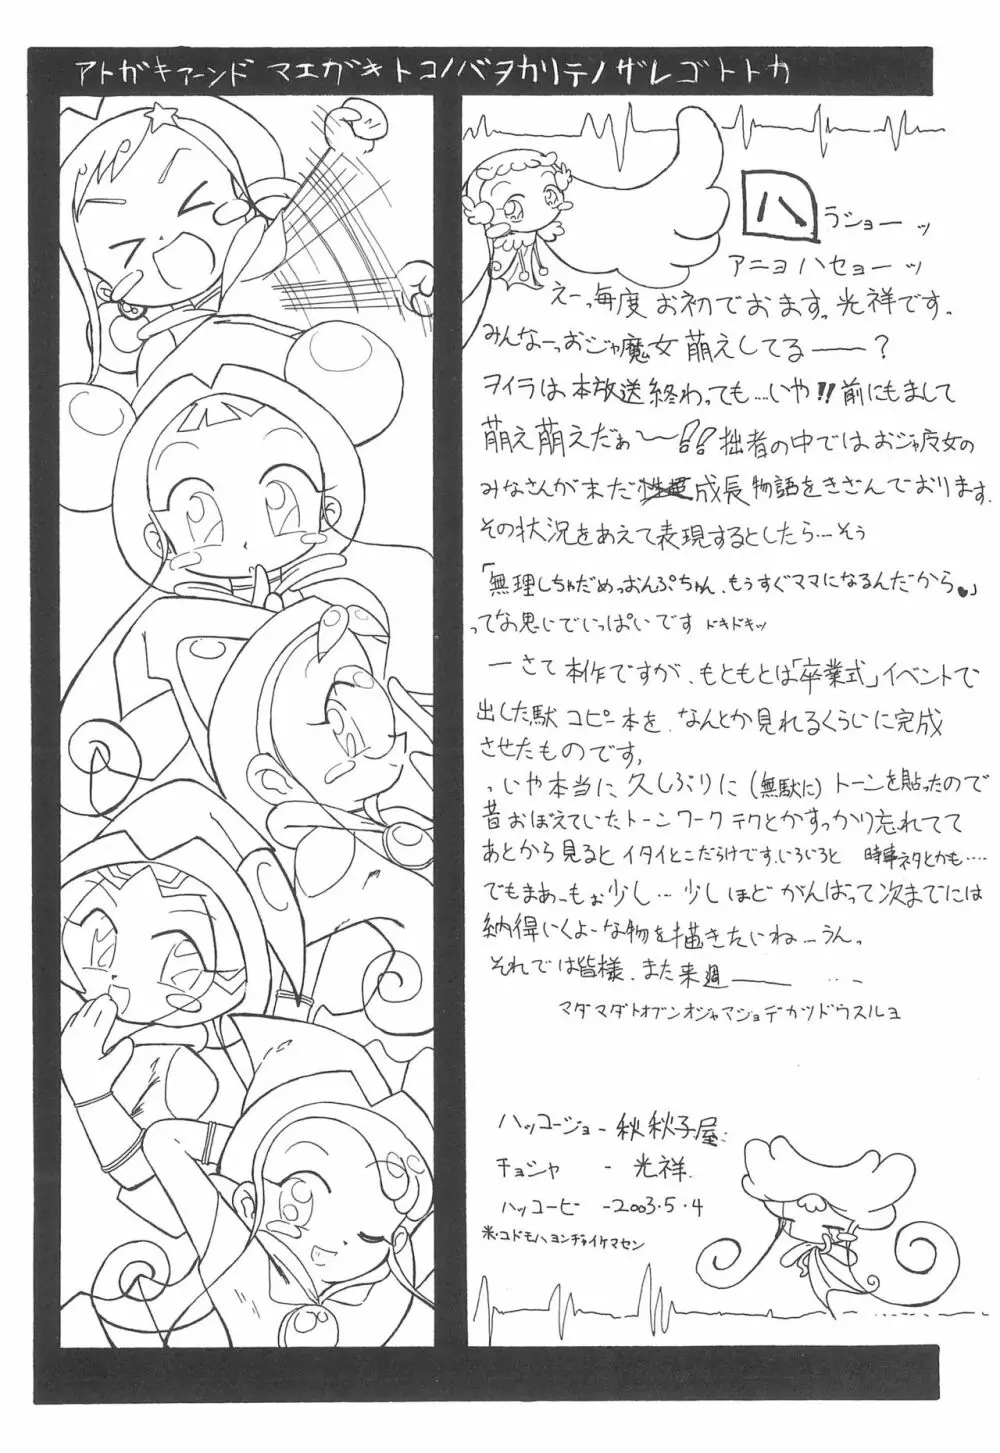 アトガキアーンド マエガキトコノバヲカリテノザレゴトトカ
ハラショーッ
アニョハセョーッ
えーっ毎度お初でおます。光祥です。
みんなーっおジャ魔女萌えしてるーー?
ヲイラは本放送終わっても…いや!!前にもまして
萌え萌えだぁ〜!!拙者の中ではおジャ魔女の
みなさんがまだ成長物語をきざんでおります。
その状況をあえて表現するとしたら…そう
「無理しちゃだめっおんぷちゃん、もうすぐママになるんだから♥」
ってな思いでいっぱいです ドキドキッ
ーさて本作ですが、もともとは「卒業式」イベントで
出した駄コピー本を、なんとか見れるくらいに完成
させたものです。
いや本当に久しぶりに(無駄に)トーンを貼ったので
昔おぼえていたトーンワークテクとかすっかり忘れてて
あとから見るとイタイとこだらけです。いろいろと 時事ネタとかも…
でもまあーもぉ少し…少しほどがんばって次までには
納得いくよーな物を描きたいね…うん。
それでは皆様、また来週ーー …
マダマダトオブンオジャマジョデカツドウスルヨ
ハッコージョー秋秋子屋
チョシャ - 光祥
ハッコービ -2003.5.4
米・コドモハヨンヂャイケマセン